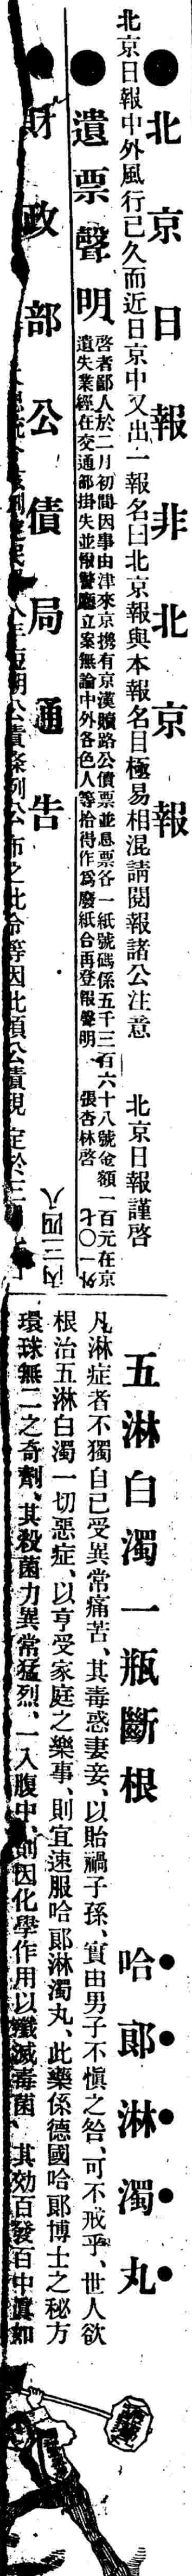 ●北京日報非北京報
北京日報中外風行已久而近日京中又出一報名曰北京報與本報名目極易相混請閱報諸公注意　北京日報謹啓
●遺票聲明
啓者鄙人於二月初間因事由津來京携有京漢贖路公債票並息票各一紙號碼係五千三百六十八號金額一百元在京
遺失業經在交通部掛失並報警廳立案無論中外各色人等拾得作爲廢紙合再登報聲明　張杏林啓
外一〇七
●財政部公債局通告
內二四八
短期公債條例公布之此令等因此項公債現定於三
五淋白濁一瓶斷根　哈郎淋濁丸
凡淋症者不獨自已受異常痛苦、其毒惑妻妾、以貽禍子孫、實由男子不愼之咎、可不戒乎、世人欲
根治五淋白濁一切惡症、以亨受家庭之樂事、則宜速服哈郎淋濁丸、此藥係德國哈郎博士之秘方
環球無二之奇劑、其殺菌力異常猛烈、一入腹中、則因化學作用以殲滅毒菌、其効百發百中眞如